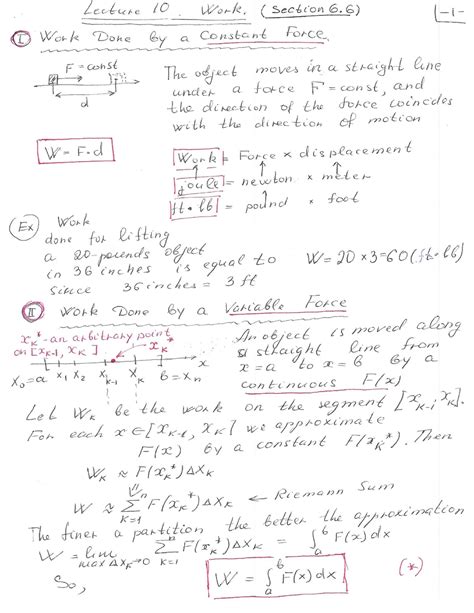 Lecture 10. Work. (Section 6.6) |-1-
I Work Done by a Constant Force.
F = const
d
The object moves in a straight line
under a force F = const, and
the direction of the force coincides
with the direction of motion
W = F·d
Work = Force × displacement
joule = newton × meter
ft·lb = pound × foot
Ex Work
done for lifting
a 20-pounds object
in 36 inches is equal to W = 20 × 3 = 60 (ft·lb)
since 36 inches = 3 ft
II Work Done by a Variable Force
x_k* - an arbitrary point
on [x_{k-1}, x_k] x_k*
x
x_0=a x_1 x_2 x_{k-1} x_k b=x_n
An object is moved along
a straight line from
x=a to x=b by a
continuous F(x)
Let W_k be the work on the segment [x_{k-1}; x_k].
For each x∈[x_{k-1}, x_k] we approximate
F(x) by a constant F(x_k*). Then
W_k ≈ F(x_k*)Δx_k
W ≈ Σ_{k=1}^{n} F(x_k*)Δx_k ← Riemann Sum
The finer a partition the better the approximation
W = lim_{max Δx_k→0} Σ_{k=1}^{n} F(x_k*)Δx_k = ∫_a^b F(x)dx
So, W = ∫_a^b F(x)dx (*)